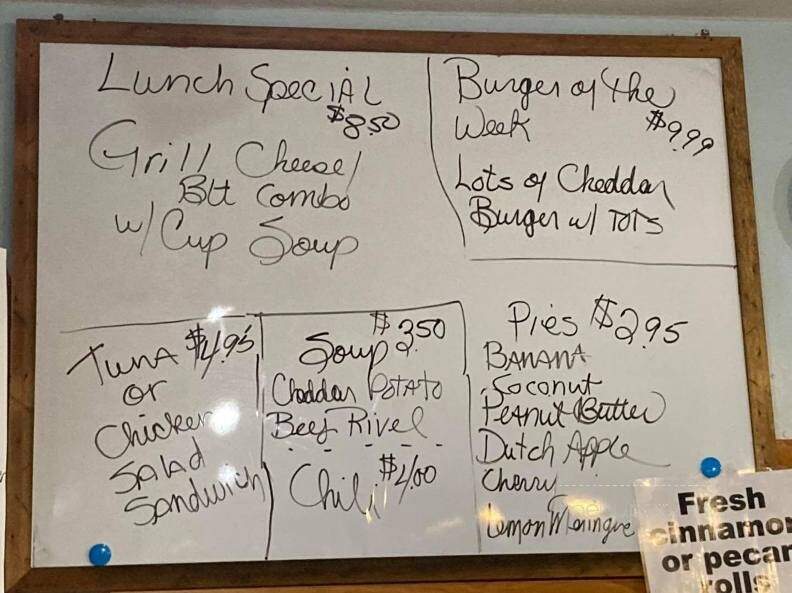 Lunch Special
$8.50
Grill Cheese/
Blt Combo
w/ Cup Soup
Burger of the
Week $9.99
Lots of Cheddar
Burger w/ TOTS
Tuna $4.95
or
Chicken
Salad
Sandwich
Soup $3.50
Cheddar Potato
Beef Rivel
Chili $4.00
Pies $2.95
Banana
Coconut
Peanut Butter
Dutch Apple
Cherry
Lemon Meringue
Fresh
cinnamon
or pecan
rolls